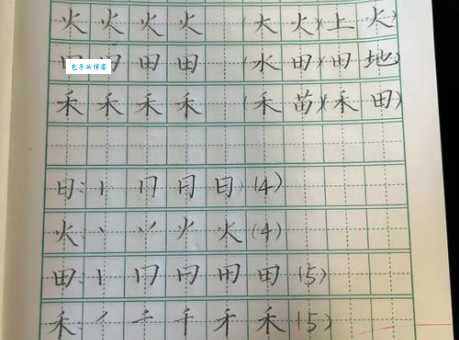 火火火火 (大火)(上火)
田田田田 (水田)(田地)
禾禾禾禾 (禾苗)(禾田)
日: 丨 冂 日 日 (4)
火: 丶 丷 火 (4)
田: 丨 冂 田 (5)
禾: 丿 二 千 禾 (5)